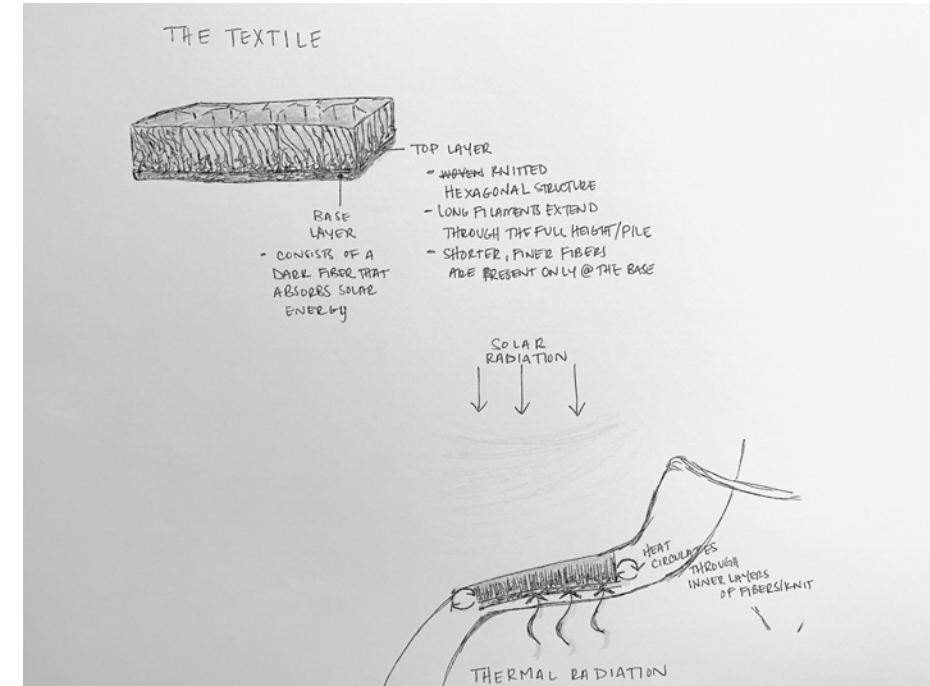 THE TEXTILE
TOP LAYER
- WOVEN KNITTED
HEXAGONAL STRUCTURE
- LONG FILAMENTS EXTEND
THROUGH THE FULL HEIGHT/PILE
- SHORTER, FINER FIBERS
ARE PRESENT ONLY @ THE BASE
BASE
LAYER
- CONSISTS OF A
DARK FIBER THAT
ABSORBS SOLAR
ENERGY
SOLAR
RADIATION
HEAT
CIRCULATES
THROUGH
INNER LAYERS
OF FIBERS/KNIT
THERMAL RADIATION